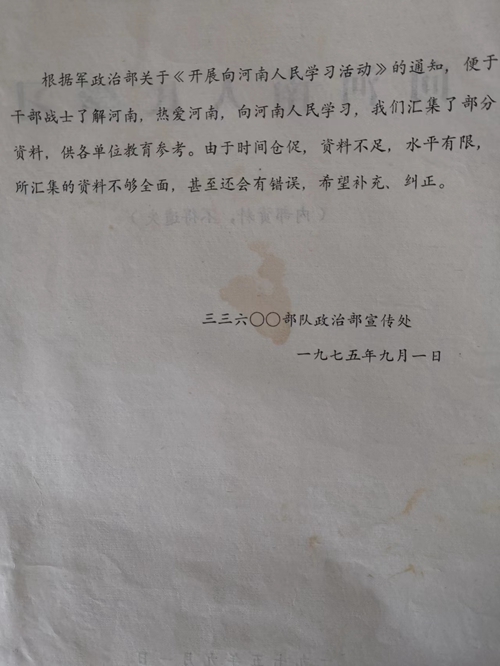 根据军政治部关于《开展向河南人民学习活动》的通知，便于
干部战士了解河南，热爱河南，向河南人民学习，我们汇集了部分
资料，供各单位教育参考。由于时间仓促，资料不足，水平有限，
所汇集的资料不够全面，甚至还会有错误，希望补充、纠正。
三三六〇〇部队政治部宣传处
一九七五年九月一日